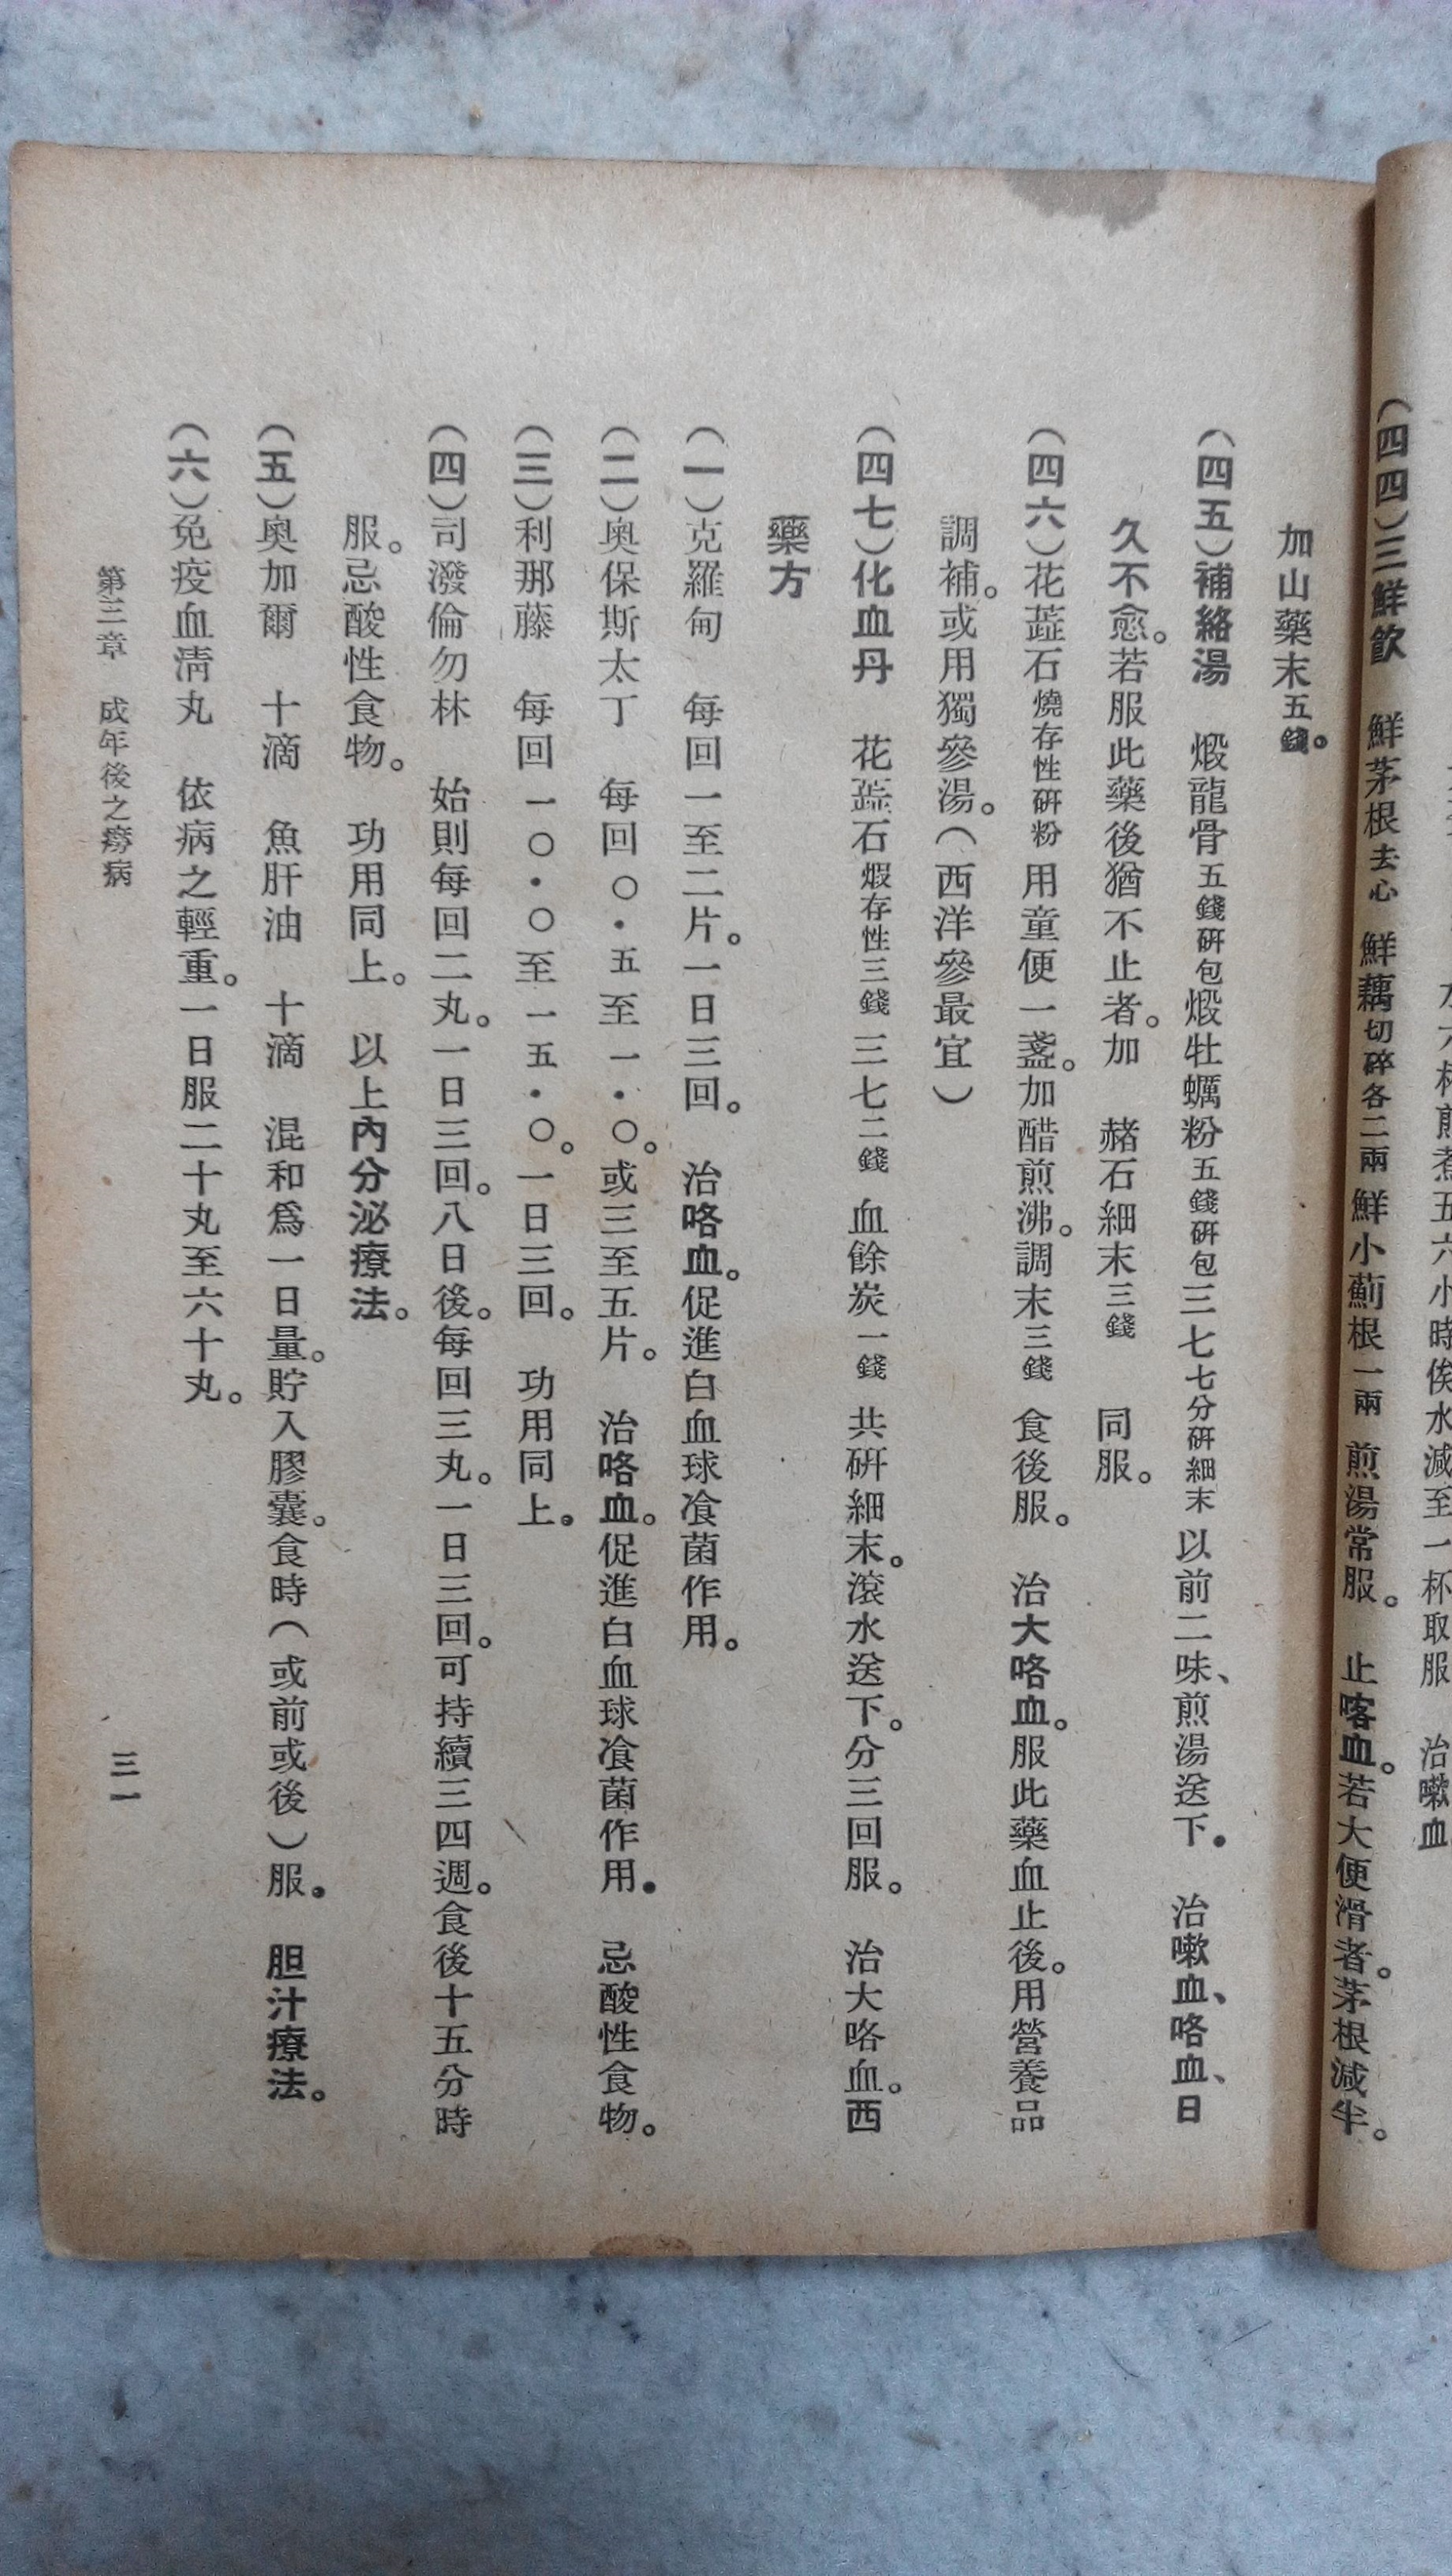 水六杯煎煮五六小時俟水減至一杯取服　治嗽血
（四四）三鮮飲　鮮茅根去心　鮮藕切碎各二兩　鮮小薊根一兩　煎湯常服。　止喀血。若大便滑者。茅根減半。
加山藥末五錢。
（四五）補絡湯　煅龍骨五錢硏包煅牡蠣粉五錢硏包三七七分硏細末　以前二味、煎湯送下。　治嗽血、咯血、日
久不愈。若服此藥後猶不止者。加　赭石細末三錢　同服。
（四六）花蕋石燒存性硏粉　用童便一盞。加醋煎沸。調末三錢　食後服。　治大咯血。服此藥血止後。用營養品
調補。或用獨參湯。（西洋參最宜）
（四七）化血丹　花蕋石煆存性三錢　三七二錢　血餘炭一錢　共硏細末。滾水送下。分三回服。　治大咯血。西
藥方
（一）克羅甸　每回一至二片。一日三回。　治咯血。促進白血球飡菌作用。
（二）奧保斯太丁　每回〇・五至一・〇。或三至五片。　治咯血。促進白血球飡菌作用。　忌酸性食物。
（三）利那藤　每回一〇・〇至一五・〇。一日三回。　功用同上。
（四）司潑倫勿林　始則每回二丸。一日三回。八日後。每回三丸。一日三回。可持續三四週。食後十五分時
服。忌酸性食物。　功用同上。　以上內分泌療法。
（五）奧加爾　十滴　魚肝油　十滴　混和爲一日量。貯入膠囊。食時（或前或後）服。　胆汁療法。
（六）免疫血淸丸　依病之輕重。一日服二十丸至六十丸。
第三章　成年後之癆病
三一